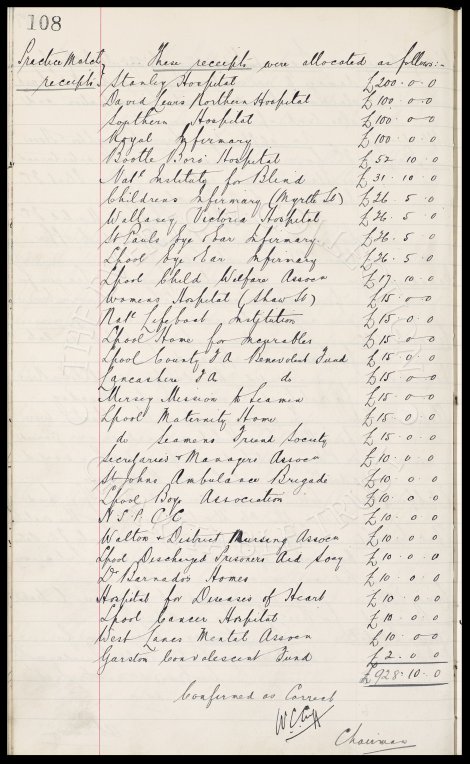 108
Practice Match receipts
These receipts were allocated as follows:-
Stanley Hospital £200. 0. 0
David Lewis Northern Hospital £100. 0. 0
Southern Hospital £100. 0. 0
Royal Infirmary £100. 0. 0
Bootle Boro' Hospital £52. 10. 0
Natl Institute for Blind £31. 10. 0
Childrens Infirmary (Myrtle St) £26. 5. 0
Wallasey Victoria Hospital £26. 5. 0
St Pauls Eye & Ear Infirmary £26. 5. 0
Lpool Eye & Ear Infirmary £26. 5. 0
Lpool Child Welfare Assocn £17. 10. 0
Womens Hospital (Shaw St) £15. 0. 0
Natl Lifeboat Institution £15. 0. 0
Lpool Home for Incurables £15. 0. 0
Lpool County F A Benevolent Fund £15. 0. 0
Lancashire F A do £15. 0. 0
Mersey Mission to Seamen £15. 0. 0
Lpool Maternity Home £15. 0. 0
do Seamens Friend Society £15. 0. 0
Secretaries & Managers Assocn £10. 0. 0
St Johns Ambulance Brigade £10. 0. 0
Lpool Boys Association £10. 0. 0
N. S. P. C. C. £10. 0. 0
Walton & District Nursing Assocn £10. 0. 0
Lpool Discharged Prisoners Aid Socy £10. 0. 0
Dr Barnados Homes £10. 0. 0
Hospital for Diseases of Heart £10. 0. 0
Lpool Cancer Hospital £10. 0. 0
West Lancs Mental Assocn £10. 0. 0
Garston Convalescent Fund £2. 0. 0
£928. 10. 0
Confirmed as Correct
W. C. Cuff
Chairman